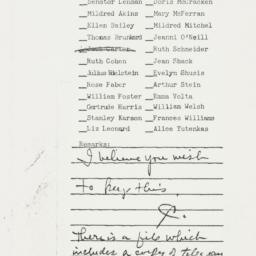 __Senator Lehman __Doris McCracken
__Mildred Akins __Mary McFerran
__Ellen Bailey __Mildred Mitchel
__Thomas Brunkard __Jeanni O'Neill
__Jack Carter __Ruth Schneider
__Ruth Cohen __Jean Shack
__Julius Edelstein __Evelyn Shusis
__Rose Faber __Arthur Stein
__William Foster __Emma Volta
__Gertrude Harris __William Welsh
__Stanley Karson __Frances Williams
__Liz Leonard __Alice Yutenkas
Remarks:
I believe you wish
to keep this.
There is a file which
includes a copy of